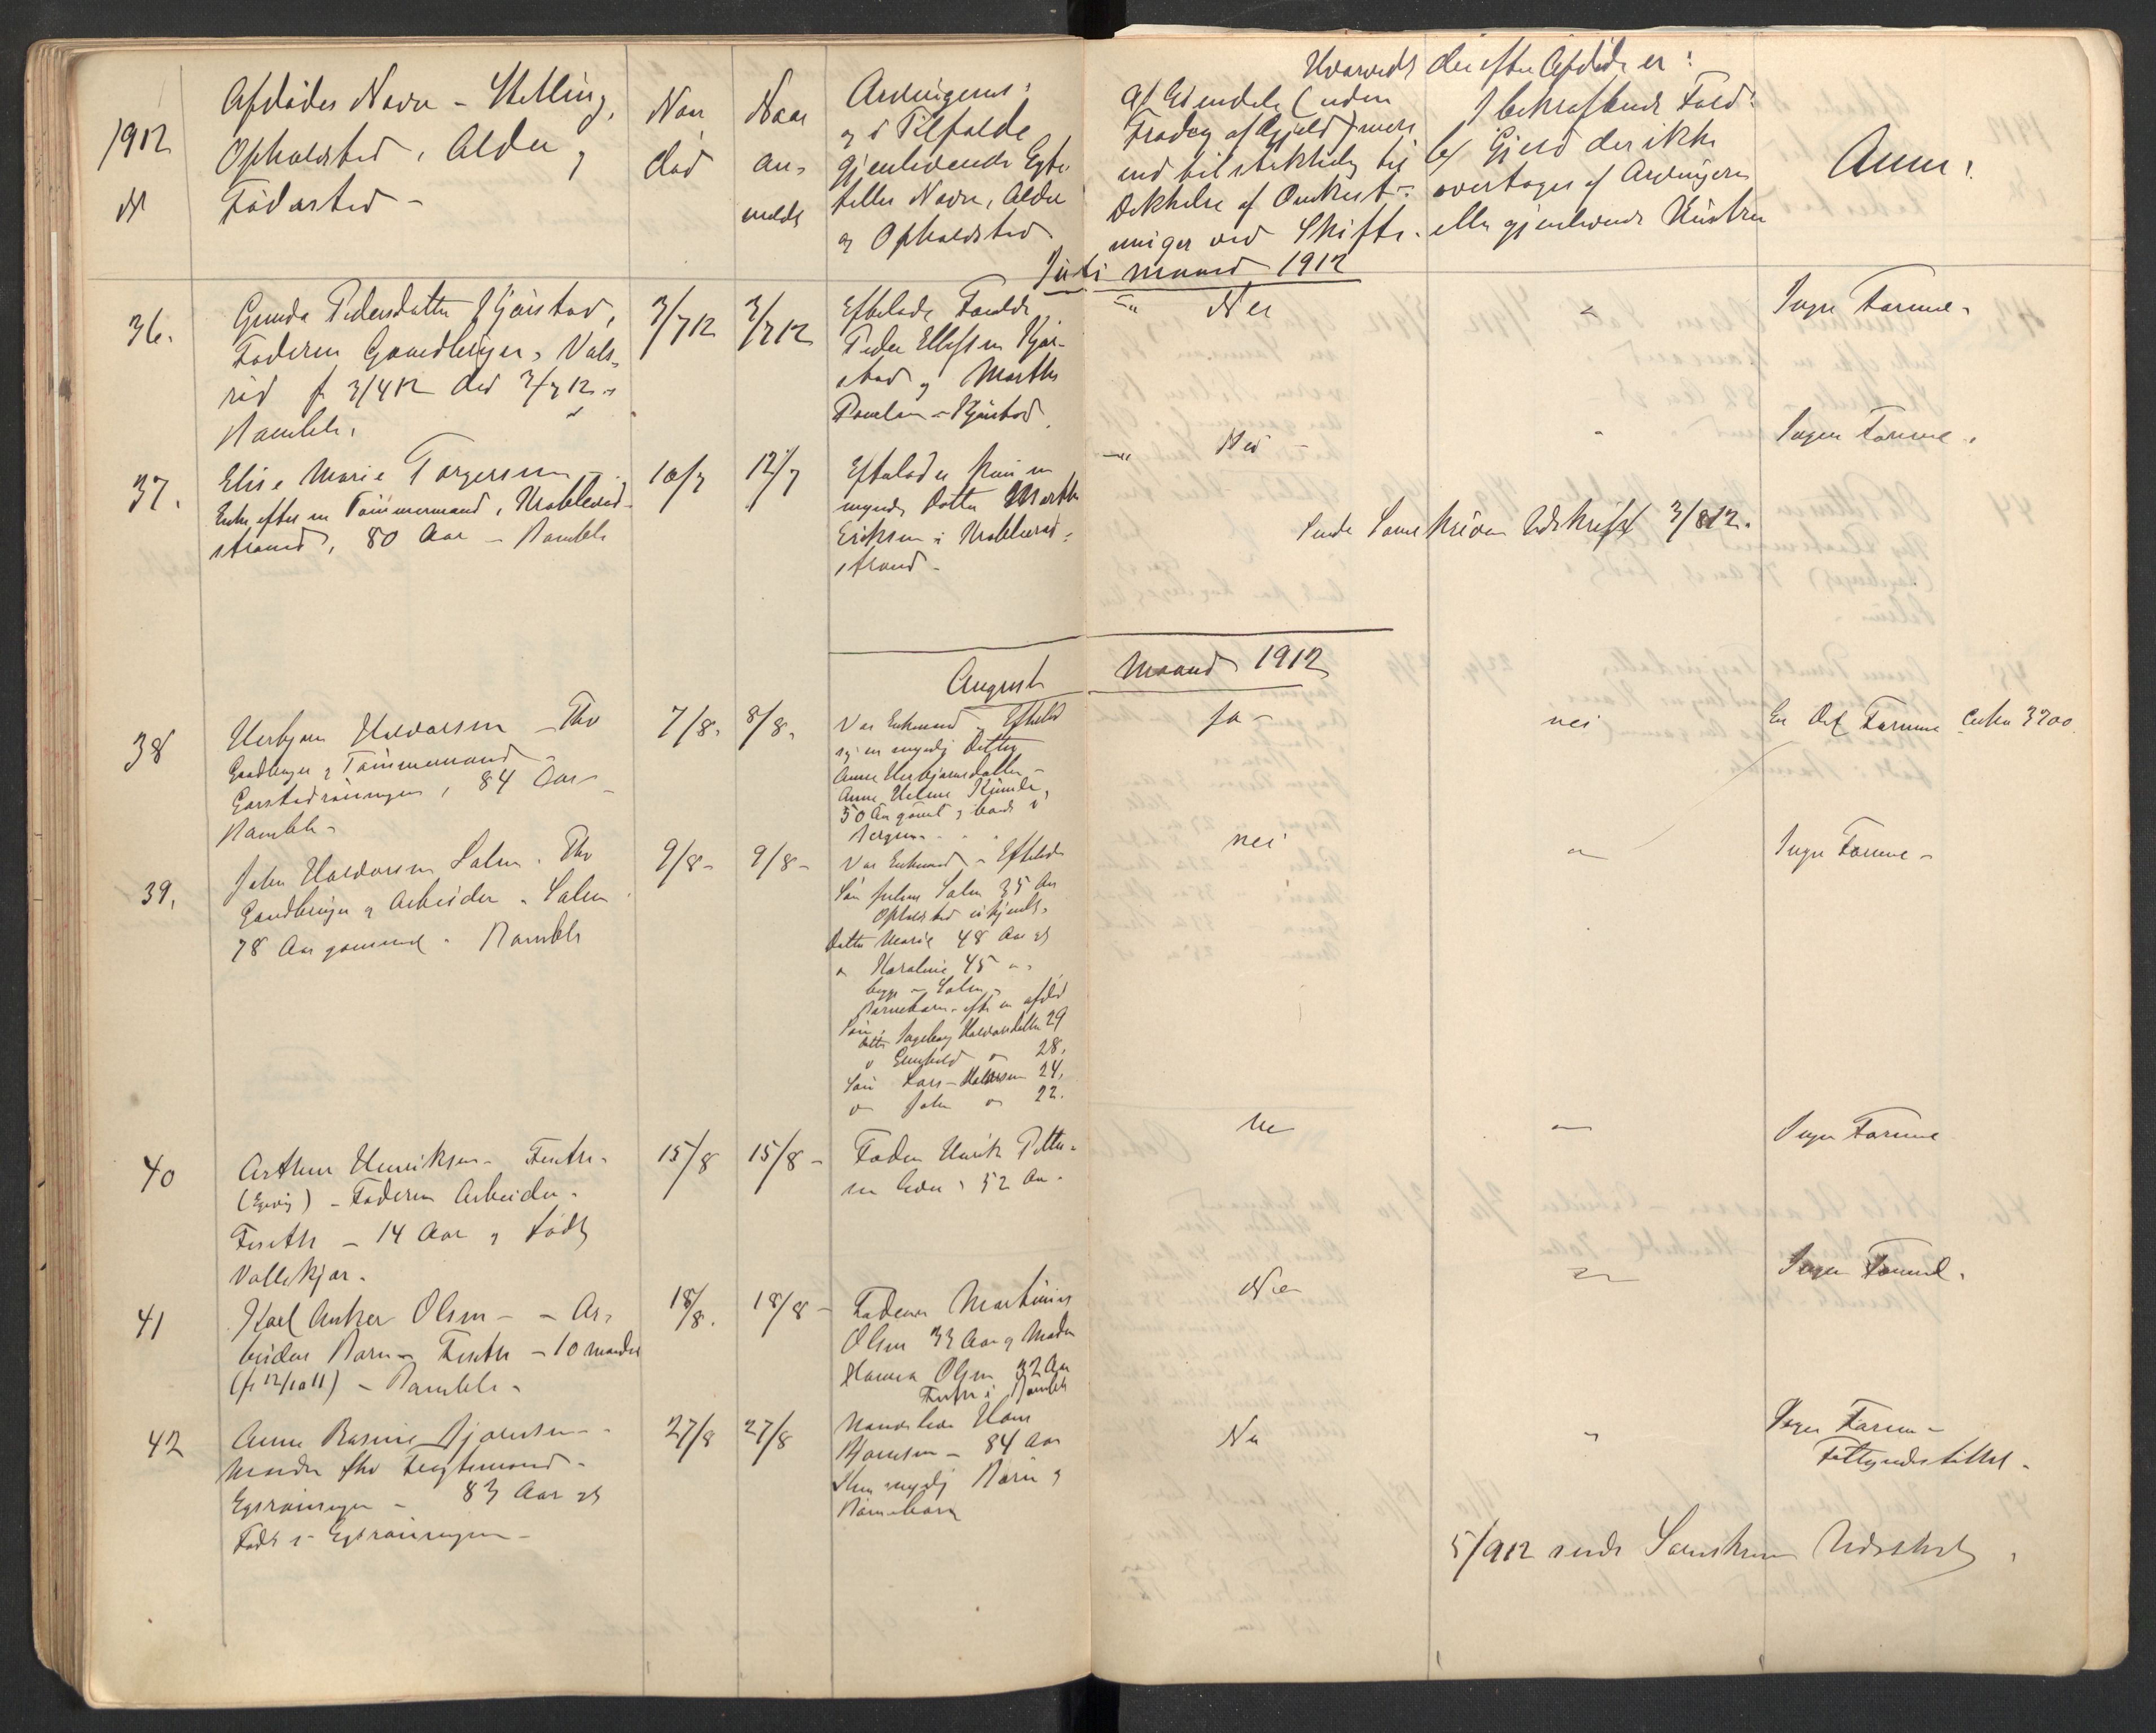 1912
№
Afdødes Navn - Stilling,
Opholdsted, Alder,
Fødested -
Naar
død
Naar
an-
meldt
Arvingernes:
og i Tilfælde
gjenlevende Egte-
fælles Navn, Alder
og Opholdsted
Hvorvidt der efter Afdøde er:
a/ Eiendele (uden
Fradrag af Gjæld) mere
end tilstrekkelig til
Dekkelse af Omkost-
ninger ved Skifte.
I bekræftende Fald:
b/ Gjæld der ikke
overtages af Arvingerne
eller gjenlevende Hustru
Anm:
Juli maaned 1912
36.
Gunda Pedersdatter Kjørstad,
Faderen Gaardbruger, Vals-
rød f 3/4 12 død 3/7 12
Bamble.
3/7 12
3/7 12
Efterlader Forældre
Peder Ellefsen Kjør-
stad og Marthe
Kjørstad
Nei
"
Ingen Formue.
37.
Elise Marie Torgersen
Enke efter en Tømmermand, Krabberød-
strand, 80 Aar - Bamble
10/7
12/7
Efterlader kun en
myndig Datter Marthe
Eriksen i Krabberød-
strand -
Nei -
"
Ingen Formue.
Sendt Sorenskriveren Udskrift 3/8 12.
August Maaned 1912
38
Herbjørn Halvorsen - Fhv
Gaardbruger og Tømmermand -
84 Aar -
Bamble -
7/8.
8/8.
Var Enkemand - Efterlod
sig en myndig Datter
Anne Herbjørnsdatter -
Anne Helene
50 Aar gammel og boende i
Bergen -
Ja -
nei
En Del Formue Cirka 3200.
39.
John Halvorsen Salen. Fhv
Gaardbruger og Arbeider - Salen
78 Aar gammel - Bamble
9/8 -
9/8 -
Var Enkemand - Efterlod
Søn Salen 35 Aar
Opholdsted ukjendt.
Datter Marie 48 Aar gl
" Karoline 45 " "
begge - Salen -
Barnebarn - efter en afdød
Søn:
Datter Ingeborg Halvorsdatter 29
" Gunhild " 28,
Søn Lars - Halvorsen 24,
" John " 22.
nei
"
Ingen Formue -
40
Arthur Henriksen - Findal
(Egvig) - Faderen Arbeider -
- 14 Aar og født
Vallekjær.
15/8
15/8 -
Fader Henrik Petter-
sen lever - 52 Aar -
nei
"
Ingen Formue
41
Karl Anker Olsen - - Ar-
beiders Barn - - 10 maaneder
(f 12/10 11) - Bamble -
18/8.
18/8 -
Faderen Martinius
Olsen 33 Aar og Moder
Hanna Olsen 32 Aar
i Bamble
Nei
"
Ingen Formue.
42
Anne Rasmine Bjørnsen -
Manden fhv
- 83 Aar gl
Født i
27/8
27/8
Manden lever Hans
Bjørnsen - 84 Aar
Flere myndige Børn og
Børnebørn
Nei
"
Ingen Formue -
Fattigunderstøttet -
5/9 12 sendt Sorenskriveren Udskrift.